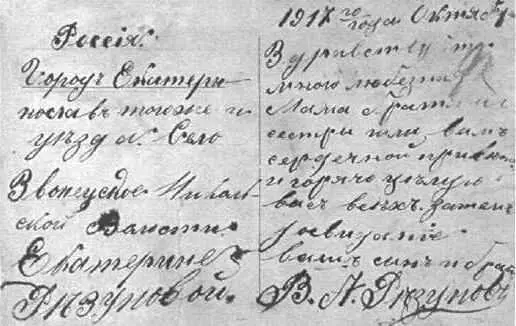 Россія.
Городъ Екатери-
нославъ тогоже и
уѣзда. Село
Звонецкое Николь-
ской Волости
Екатерине
Ризуновой.
1917 го года Октяб
Здравствуйте
много любезная
Мама братики
сестры шли вамъ
сердечной приве
и горячо целую
васъ всѣхъ. затемъ
досвидание
вашъ сынъ и братъ
В. А. Ризуновъ